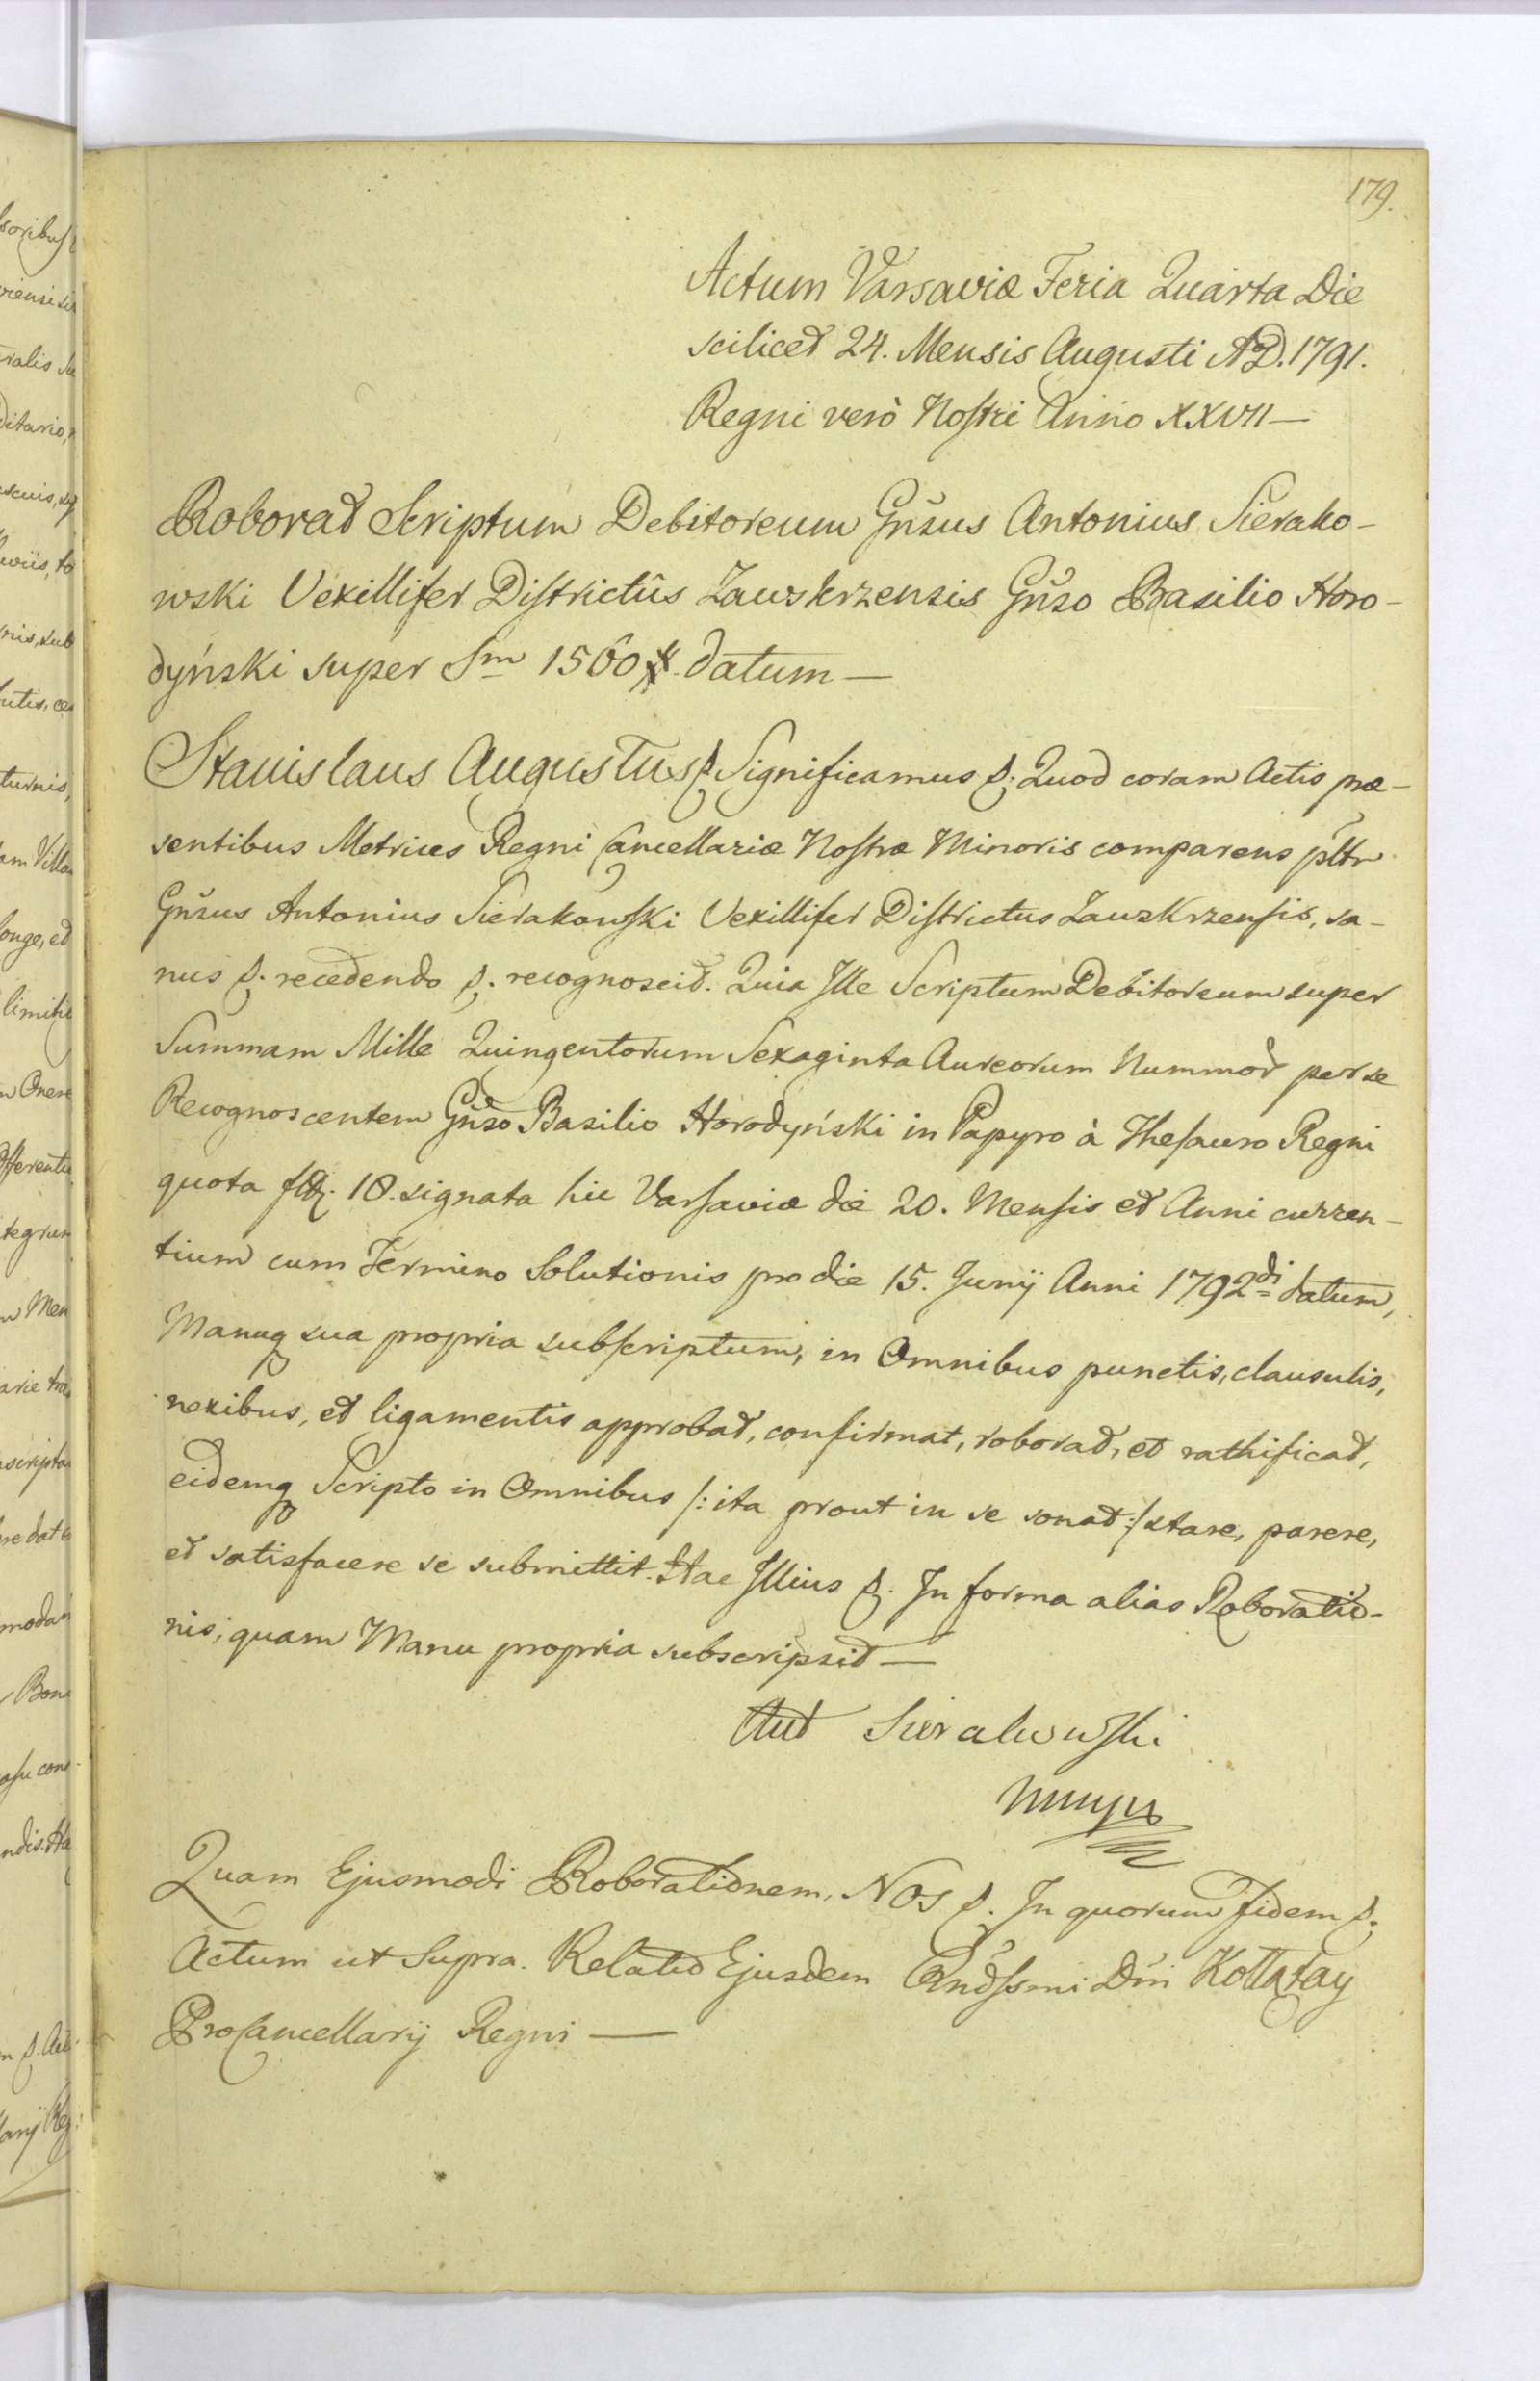 179.
Actum Varsaviæ Feria Quarta Die
scilicet 24. Mensis Augusti A.D. 1791.
Regni verò Nostri Anno XXVII—
Roborat Scriptum Debitoreum Gñsus Antonius Sierako-
wski Vexillifer Districtûs Zawskrzensis Gñso Basilio Horo-
dyński super Sm 1560 datum—
Stanislaus Augustus &. Significamus &. Quod coram Actis præ-
sentibus Metrices Regni Cancellariæ Nostræ Minoris comparens pltr
Gñsus Antonius Sierakowski Vexillifer Districtus Zawskrzensis, sa-
nus &. recedendo &. recognoscit. Quia Ille Scriptum Debitoreum super
Summam Mille Quingentorum Sexaginta Aureorum Nummor per se
Recognoscentem Gñso Basilio Horodyński in Papyro à Thesauro Regni
quota 10. signata hic Varsaviæ die 20. Mensis et Anni curren-
tium cum Termino Solutionis pro die 15. Junij Anni 1792di datum,
Manuq sua propria subscriptum, in Omnibus punctis, clausulis,
nexibus, et ligamentis approbat, confirmat, roborat, et rathificat,
eidemq Scripto in Omnibus /: ita prout in se sonat :/ stare, parere,
et satisfacere se submittit. Hac Illius &. In forma alias Roboratio-
nis, quam Manu propria subscripsit—
Ant Sierakowski
mmpp
Quam Ejusmodi Roborationem, Nos &. In quorum fidem &.
Actum ut Supra. Relatio Ejusdem Rndssmi Dñi Kołłątay
ProCancellarij Regni—